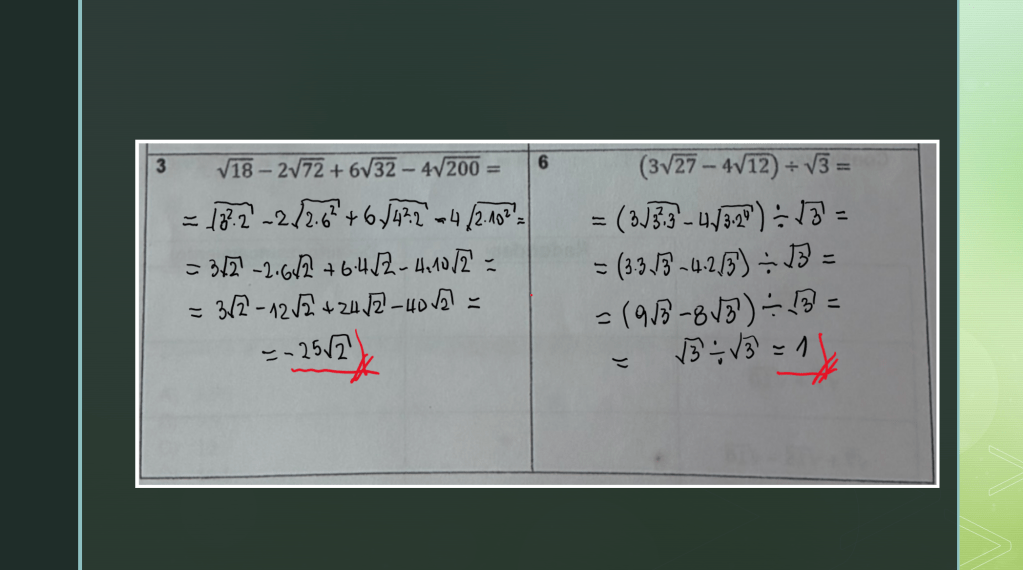 3 √18 − 2√72 + 6√32 − 4√200 =
= √3²·2 − 2√2·6² + 6√4²·2 − 4√2·10² =
= 3√2 − 2·6√2 + 6·4√2 − 4·10√2 =
= 3√2 − 12√2 + 24√2 − 40√2 =
= − 25√2
6 (3√27 − 4√12) ÷ √3 =
= (3√3²·3 − 4√3·2²) ÷ √3 =
= (3·3√3 − 4·2√3) ÷ √3 =
= (9√3 − 8√3) ÷ √3 =
= √3 ÷ √3 = 1